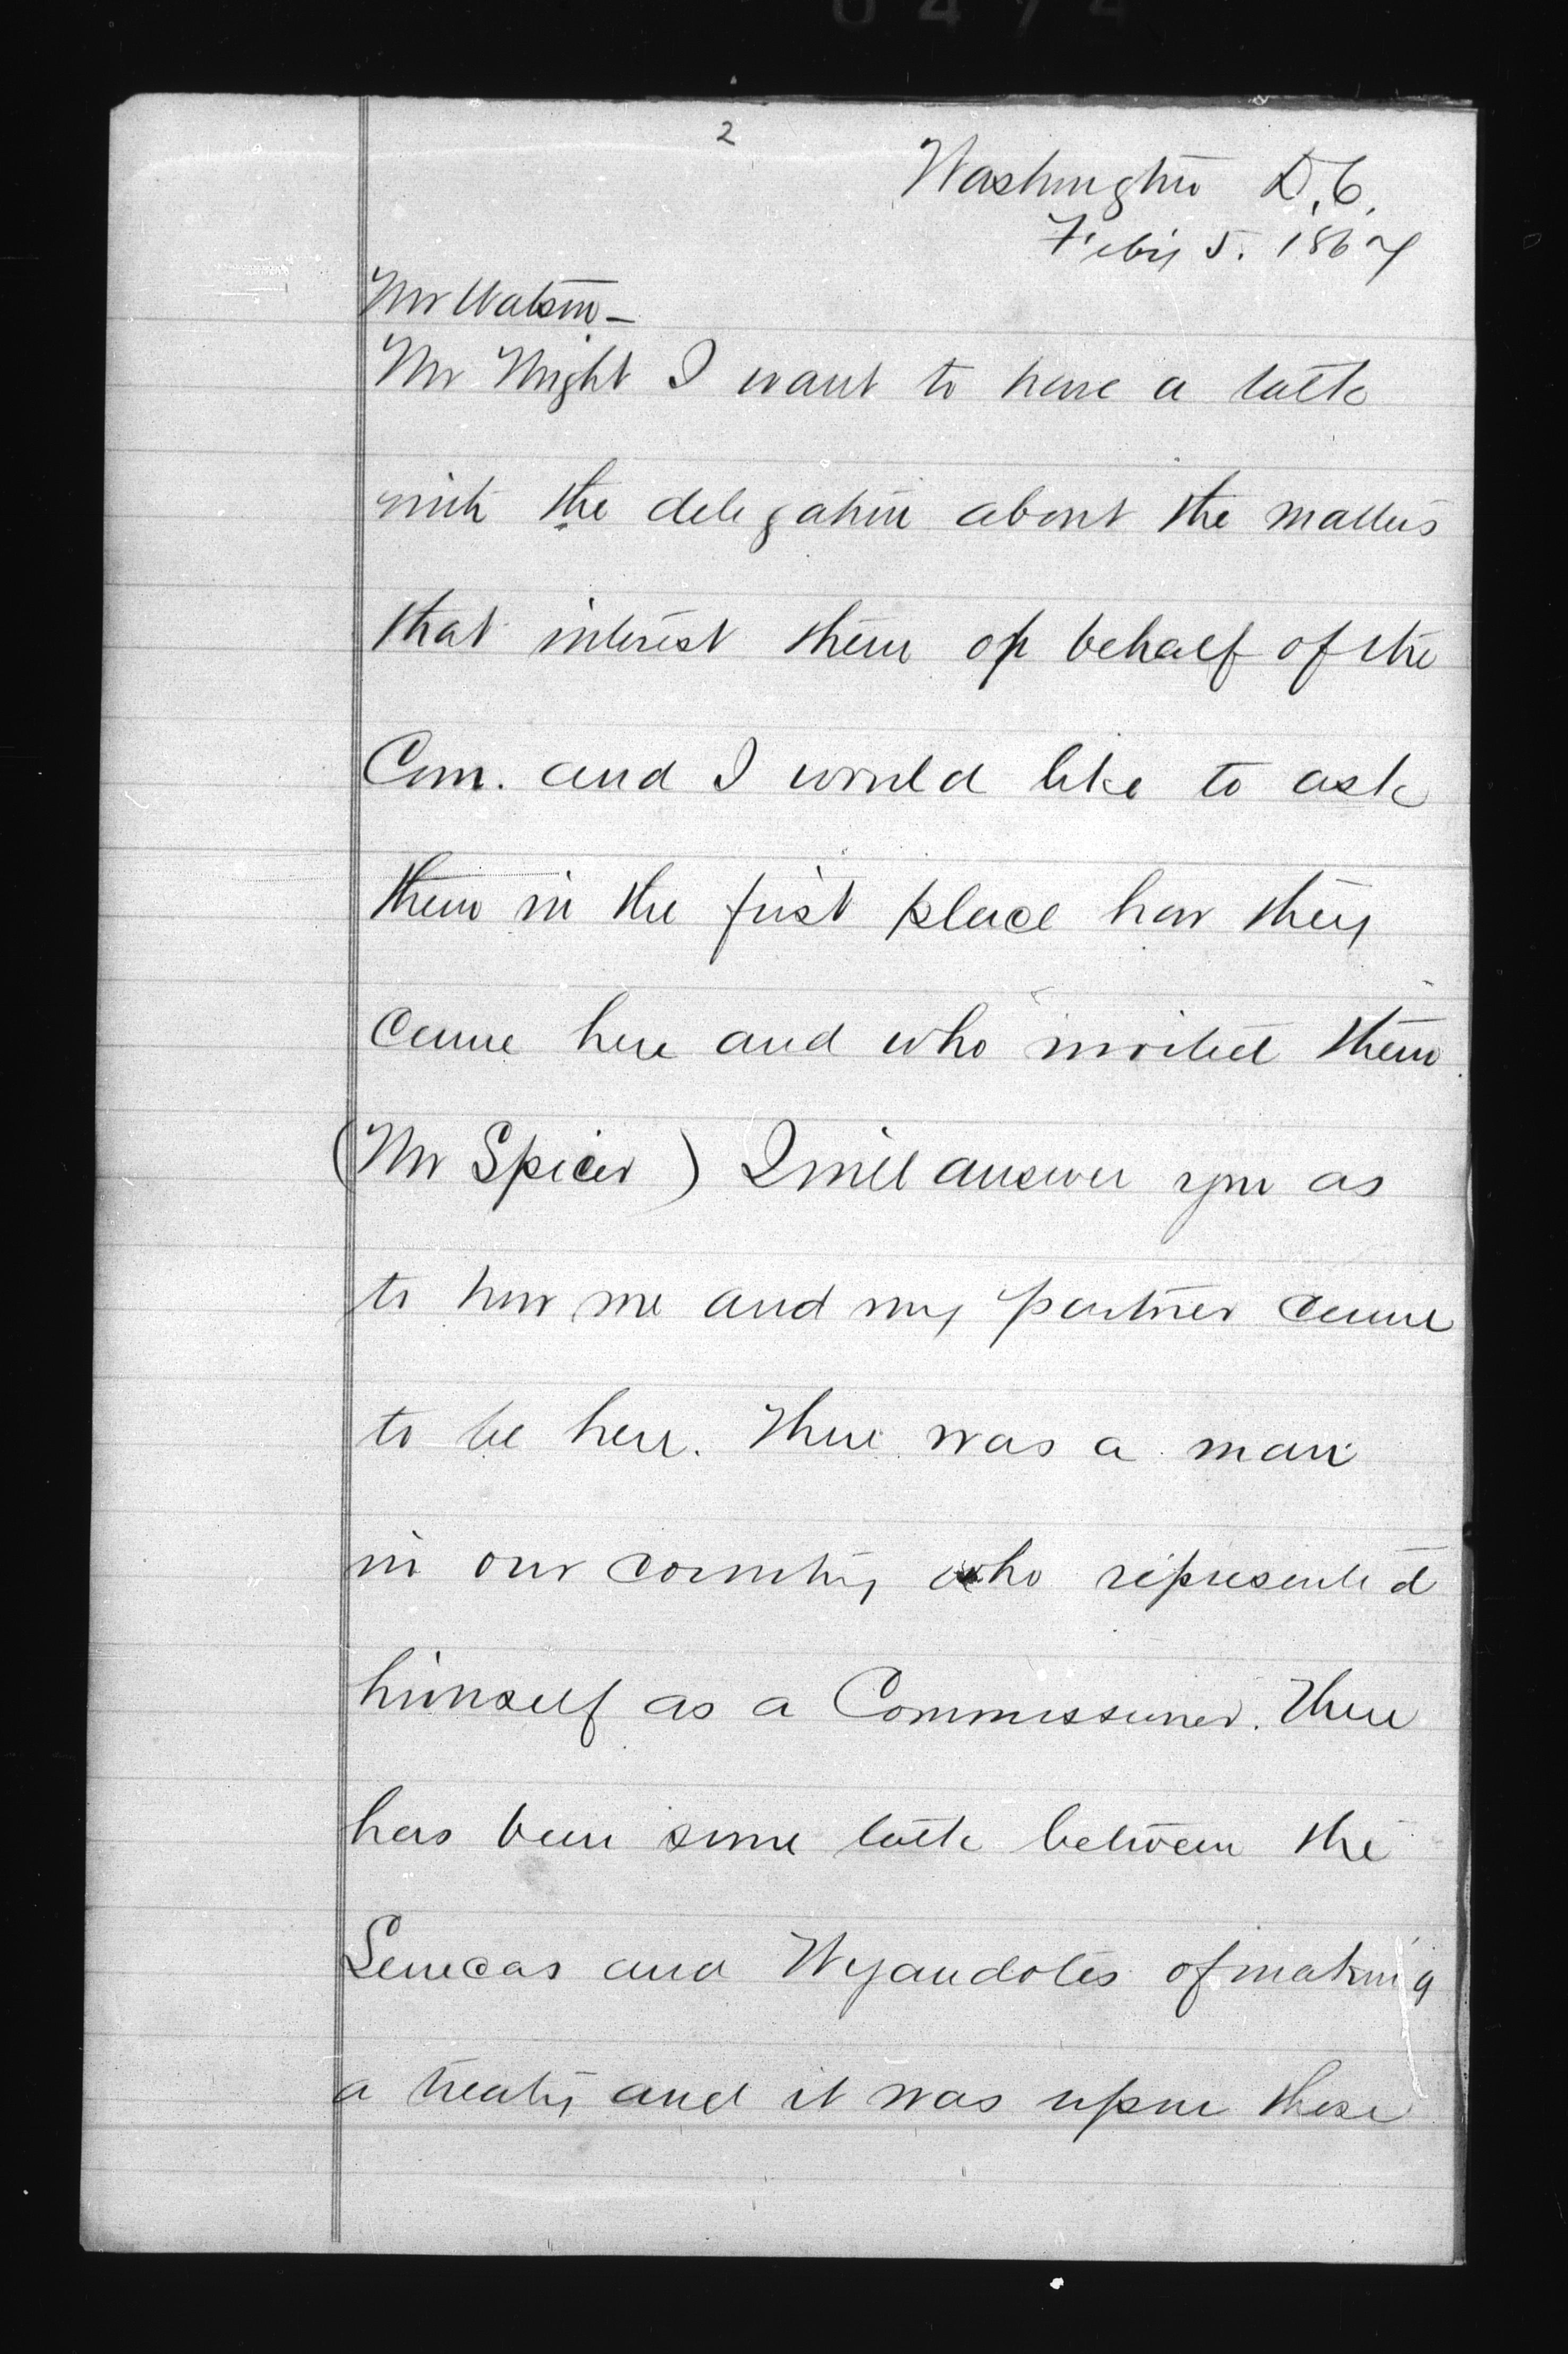 2
Washington D.C.
Feby 5. 1867
Mr Watson—
Mr Wright I want to have a talk
with the delegation about the matters
that interest them on behalf of the
Com. and I would like to ask
them in the first place how they
came here and who invited them.
(Mr Spicer) I will answer you as
to how me and my partner came
to be here. There was a man
in our country who represented
himself as a Commissioner. There
has been some talk between the
Senecas and Wyandotes of making
a treaty and it was upon these